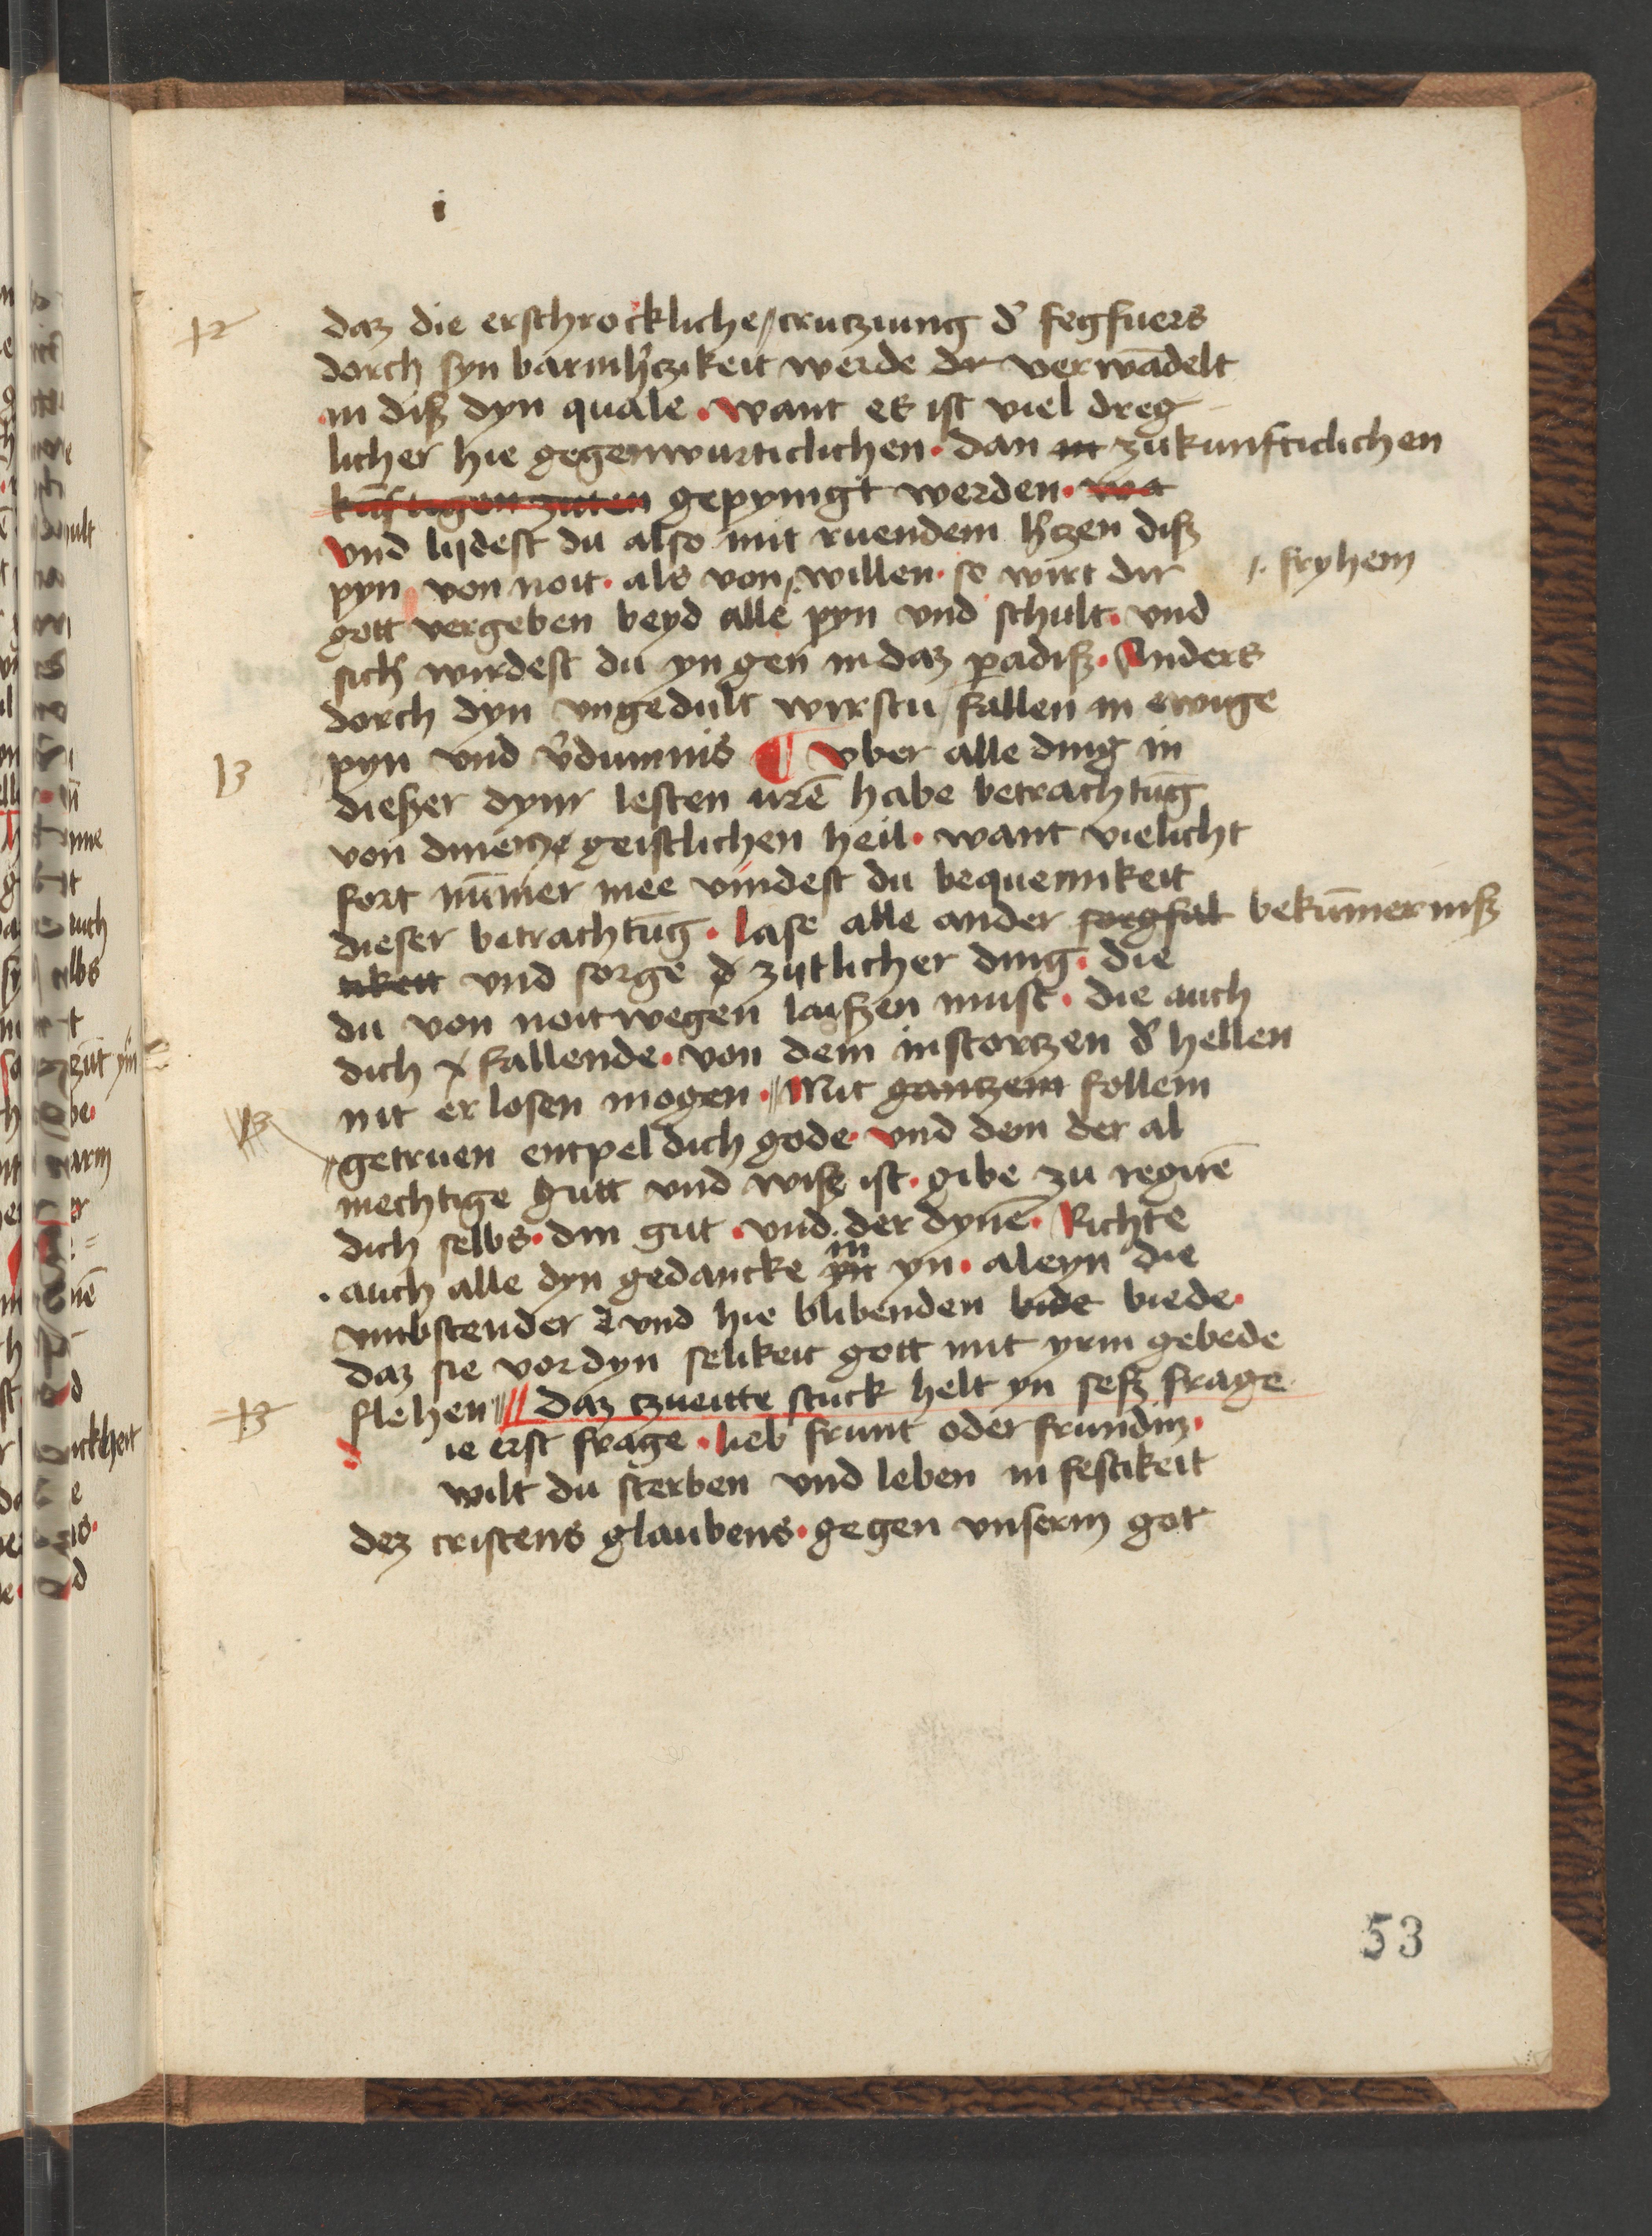 i
12
daz die erschrockliche crutziung d' fegfuers
dorch syn barmh'czikeit werde dr verwādelt
in diß dyn quale. want es ist viel dreg
licher hie gegenwurticlichen. dan in zukunfticlichen
kūftigen zitten gepynigt werden. wa
vnd lijdest du also mit ruendem h'czen diß
pyn von noit. als von willen. so wirt dir
fryhem
gott vergeben beyd alle pyn vnd schult. vnd
sich' wirdest du yn gen in daz padiß. Anders
dorch dyn vngedult wirstu fallen in ewige
13
pyn vnd v'dumnis ¶ Vber alle ding in
dießer dynr lesten urē habe betrachtūg
von dinem geistlichen heil. want vielicht
fort nūmer mee vindest du bequemikeit
dieser betrachtūg. lase alle ander sorgfal bekūmerniß
tikeit vnd sorge d' zijtlicher ding. die
du von noit wegen laißen must. die auch
dich fallende. von dem instorczen d' hellen
nit erlosen mogen. Mit gantzem follem
13
getruen entpel dich gode. vnd dem der al
mechtige gutt vnd wiß ist. gibe zu regirē
dich selbs. din gut. vnd der dynē. Richte
auch alle dyn gedancke yn in yn. aleyn die
vmbstender vnd hie blibenden bide biede.
daz sie vor dyn selikeit gott mit yrm gebede
flehen daz czueitte stuck helt yn seß frage
13
d ie erst frage. lieb frunt oder frundin.
wilt du sterben vnd leben in festikeit
dez cristens glaubens. gegen vnserm got
53